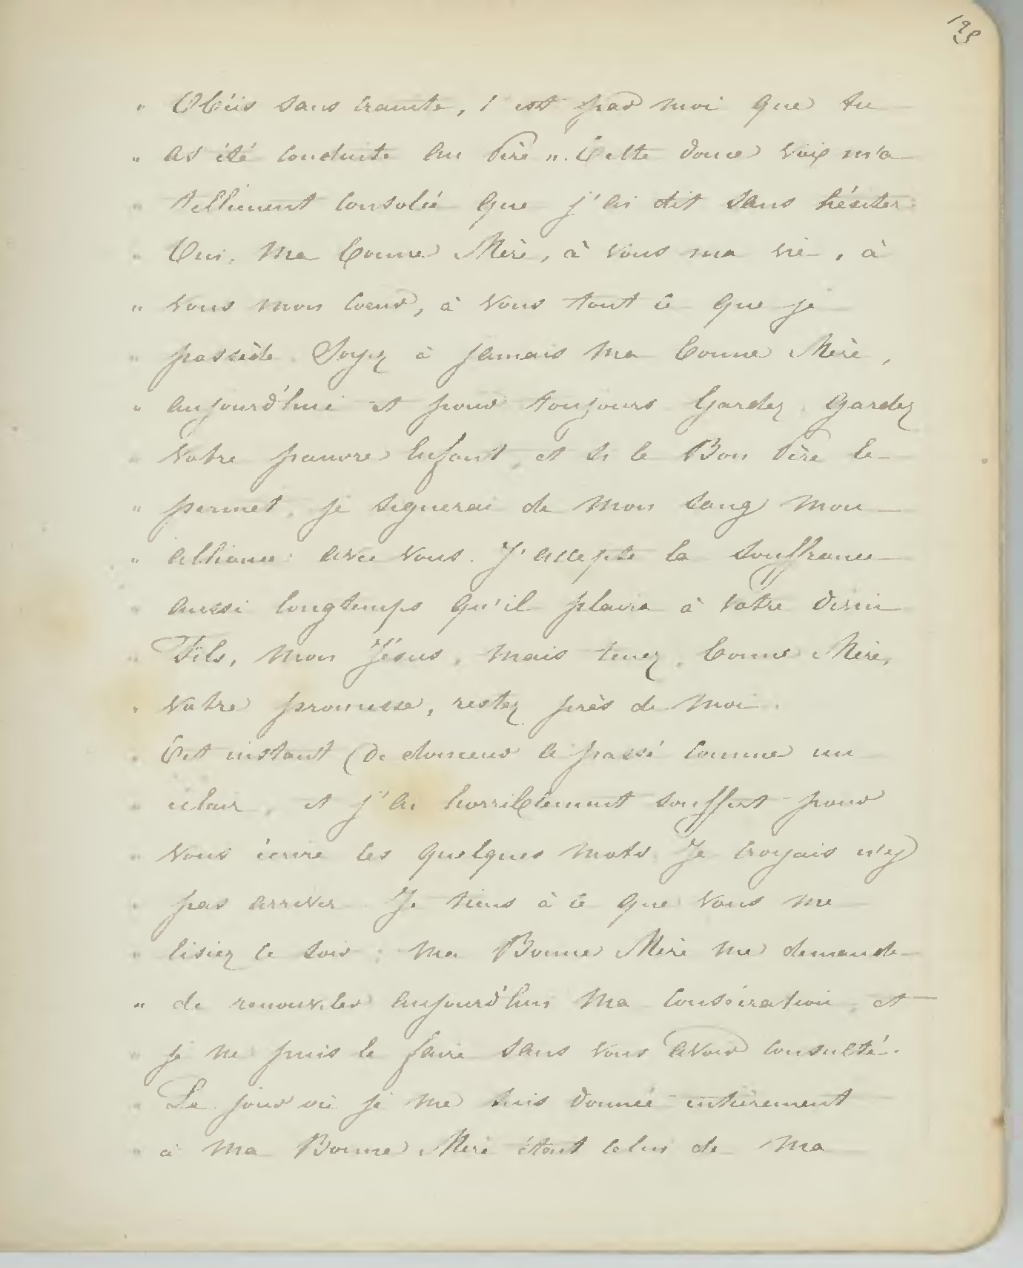 195
" Obéis sans crainte, c'est par moi que tu
" as été conduite au Père ". Cette douce voix m'a
" tellement consolée que j'ai dit sans hésiter :
" Oui, ma bonne Mère, à vous ma vie, à
" vous mon cœur, à vous tout ce que je
" possède. Soyez à jamais ma bonne Mère,
" aujourd'hui et pour toujours. Gardez, gardez
" votre pauvre enfant, et si le Bon Père le
" permet, je signerai de mon sang mon
" alliance avec vous. J'accepte la souffrance
" aussi longtemps qu'il plaira à votre divin
" Fils, mon Jésus, mais tenez, bonne Mère,
" votre promesse, restez près de moi.
" Cet instant de bonheur a passé comme un
" éclair, et j'ai horriblement souffert pour
" vous écrire ces quelques mots. Je croyais n'y
" pas arriver. Je tiens à ce que vous me
" lisiez ce soir ; ma Bonne Mère me demande
" de renouveler aujourd'hui ma consécration, et
" je ne puis le faire sans vous avoir consulté.
" Le jour où je me suis donnée entièrement
" à ma Bonne Mère étant celui de ma